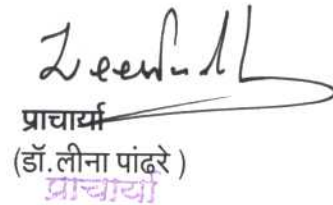 प्राचार्या
(डॉ.लीना पांढरे )
प्राचार्या